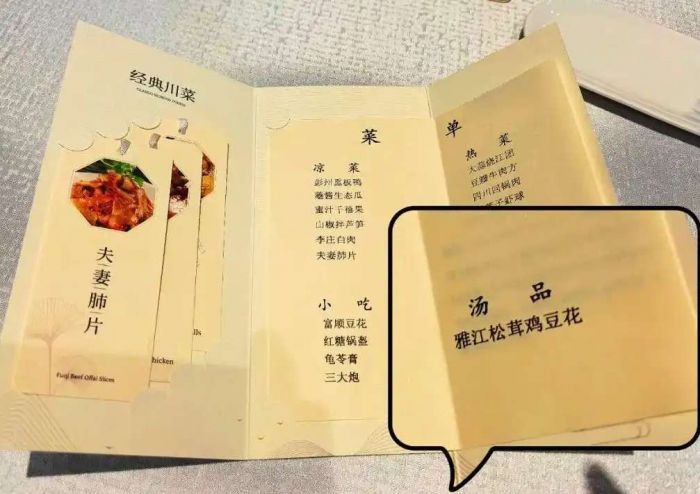 经典川菜
夫妻肺片
Fuqi Beef Offal Slices
hicken
lls
菜 单
凉 菜
彭州蔗板鸭
蘸酱生态瓜
蜜汁千禧果
山椒拌芦笋
李庄白肉
夫妻肺片
小 吃
富顺豆花
红糖锅盔
龟苓膏
三大炮
热 菜
大蒜烧江团
豆瓣牛肉方
四川回锅肉
子虾球
汤 品
雅江松茸鸡豆花